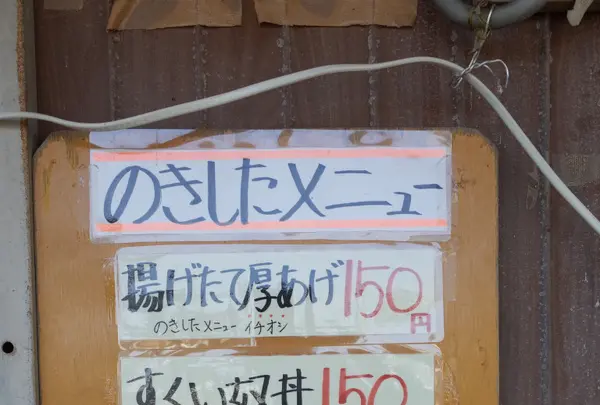 のきしたメニュー
揚げたて厚あげ150円
のきしたメニュー イチオシ
すくい奴丼150